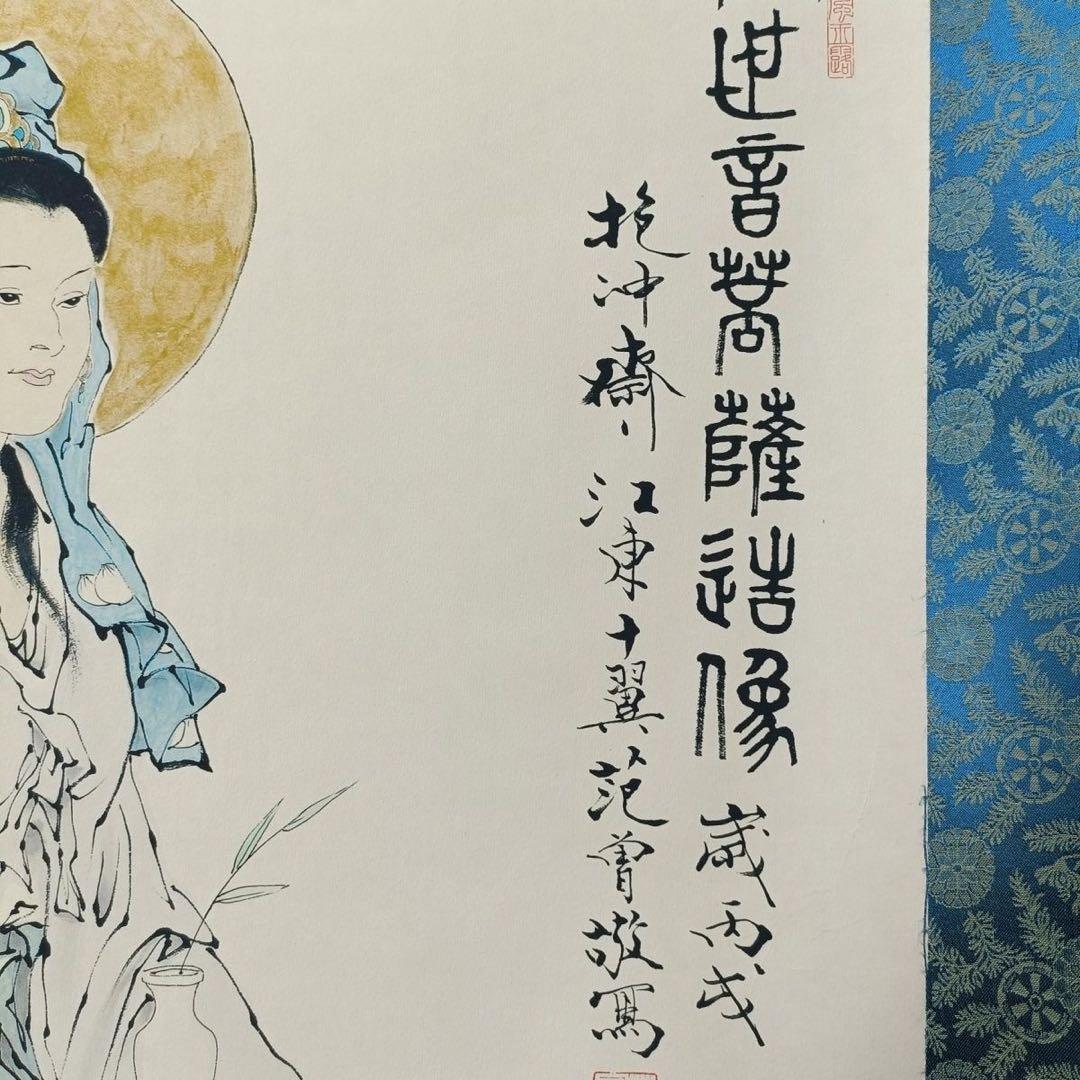 世音菩薩造像 歲丙戌
抱沖齋丶江東十翼范曾敬寫